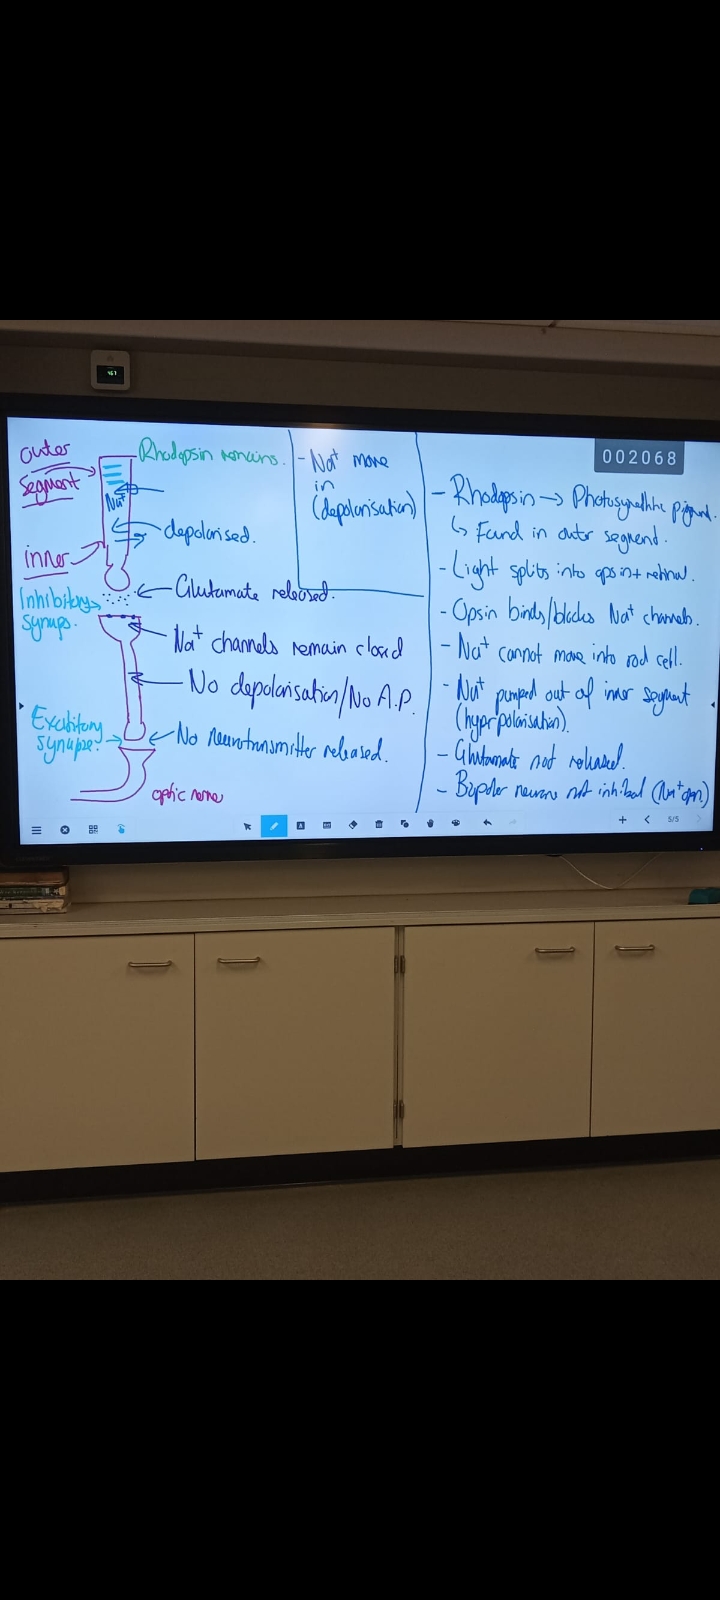 outer
segment
Rhodopsin remains.
Na⁺
depolarised.
inner
Glutamate released.
Inhibitory
synaps.
Na⁺ channels remain closed
No depolarisation/No A.P.
Excititory
synapse
No neurotransmitter released.
optic nerve
- Na⁺ move
in
(depolarisation)
002068
- Rhodopsin → Photosynethtic pigment.
↳ Found in outer segment.
- Light splits into opsin + retinal.
- Opsin binds/blocks Na⁺ channels.
- Na⁺ cannot move into rod cell.
- Na⁺ pumped out of inner segment
(hyperpolarisation).
- Glutamate not released.
- Bipolar neurone not inhibited (Na⁺ open)
5/5